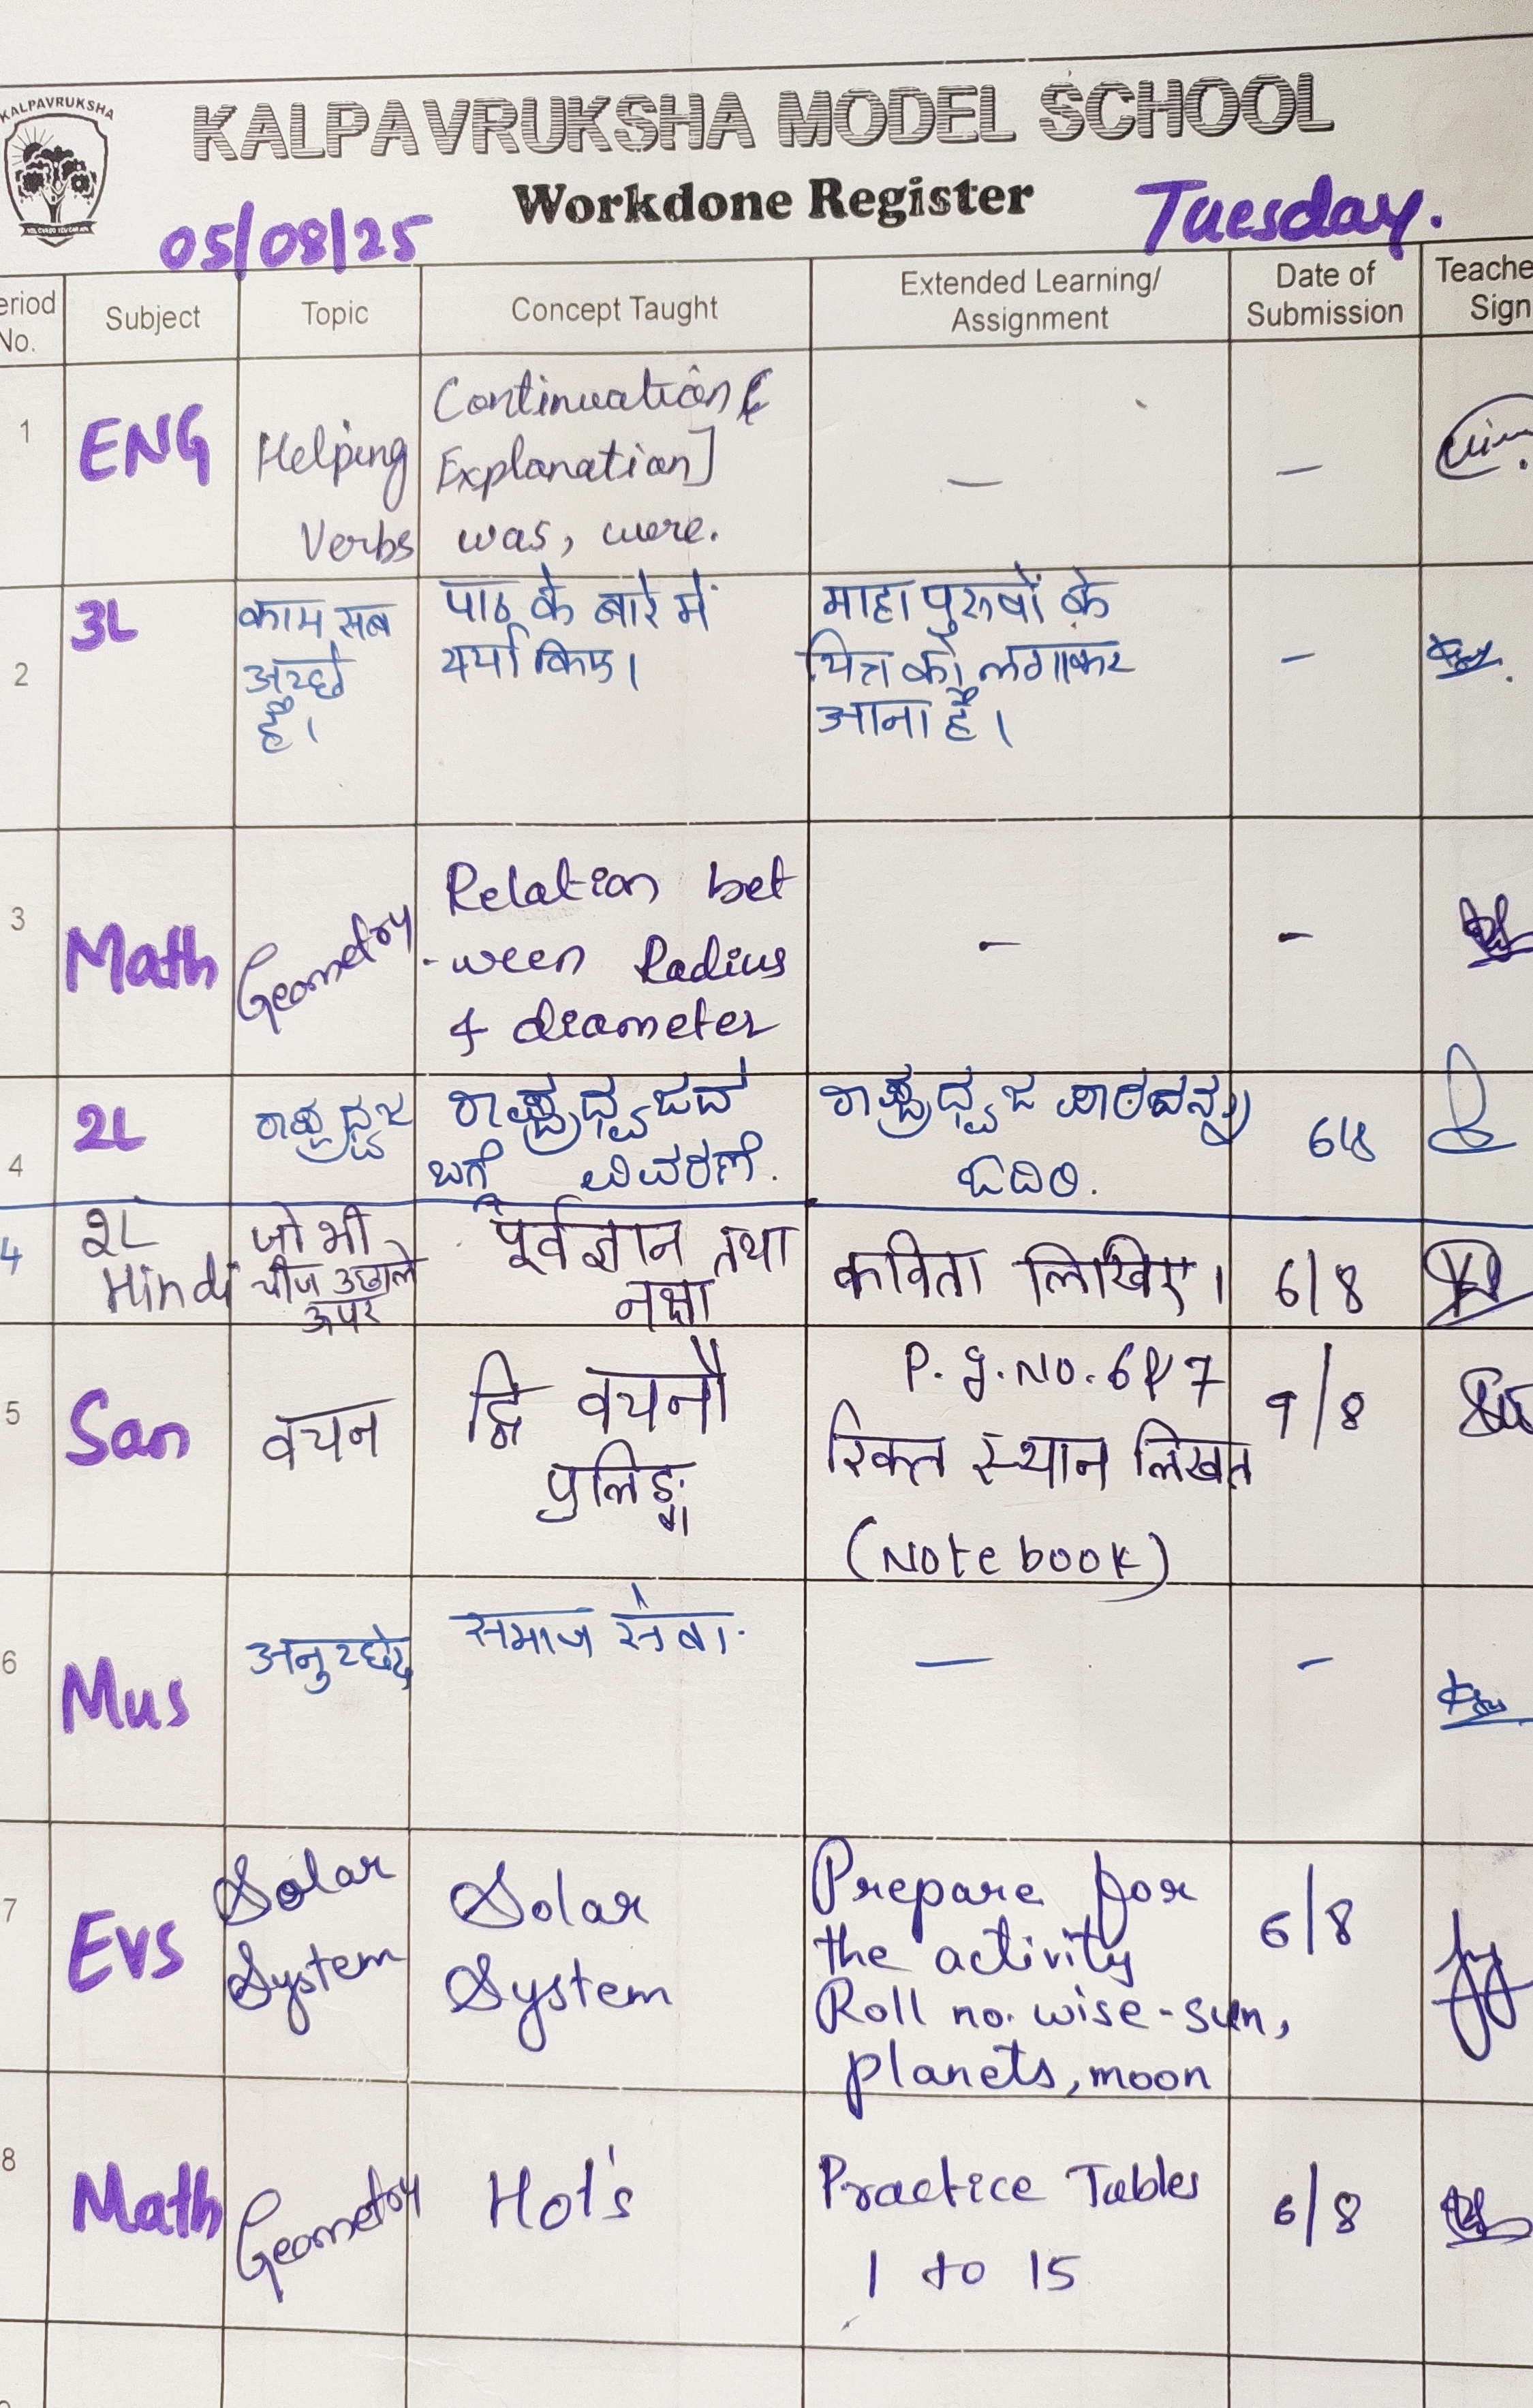 KALPAVRUKSHA
KALPAVRUKSHA MODEL SCHOOL
Workdone Register
05/08/25
Tuesday.
eriod No.
Subject
Topic
Concept Taught
Extended Learning/
Assignment
Date of
Submission
Teache
Sign
1
ENG
Helping
Verbs
Continuation &
Explanation]
was, were.
—
—
2
3L
काम सब
अच्छे
है।
पाठ के बारे में
चर्चा किए।
माहा पुरुषों के
चित्र को लगाकर
आना है।
–
3
Math
Geometry
Relation bet
-ween Radius
& diameter
–
-
4
2L
ರಾಷ್ಟ್ರಧ್ವಜ
ರಾಷ್ಟ್ರಧ್ವಜದ
ಬಗ್ಗೆ ವಿವರಣೆ.
ರಾಷ್ಟ್ರಧ್ವಜ ಪಾಠವನ್ನು
ಓದಿರಿ.
6/8
4
2L
Hindi
जो भी
चीज उछाले
ऊपर
पूर्वज्ञान तथा
नक्षा
कविता लिखिए।
6/8
5
San
वचन
द्वि वचनौ
पुलिङ्ग
P.g.No. 6 & 7
रिक्त स्थान लिखत
(Notebook)
9/8
6
Mus
अनुच्छेद
समाज सेवा.
—
–
7
Evs
Solar
System
Solar
System
Prepare for
the activity
Roll no. wise - sun,
planets, moon
6/8
8
Math
Geometry
Hot's
Practice Tables
1 to 15
6/8